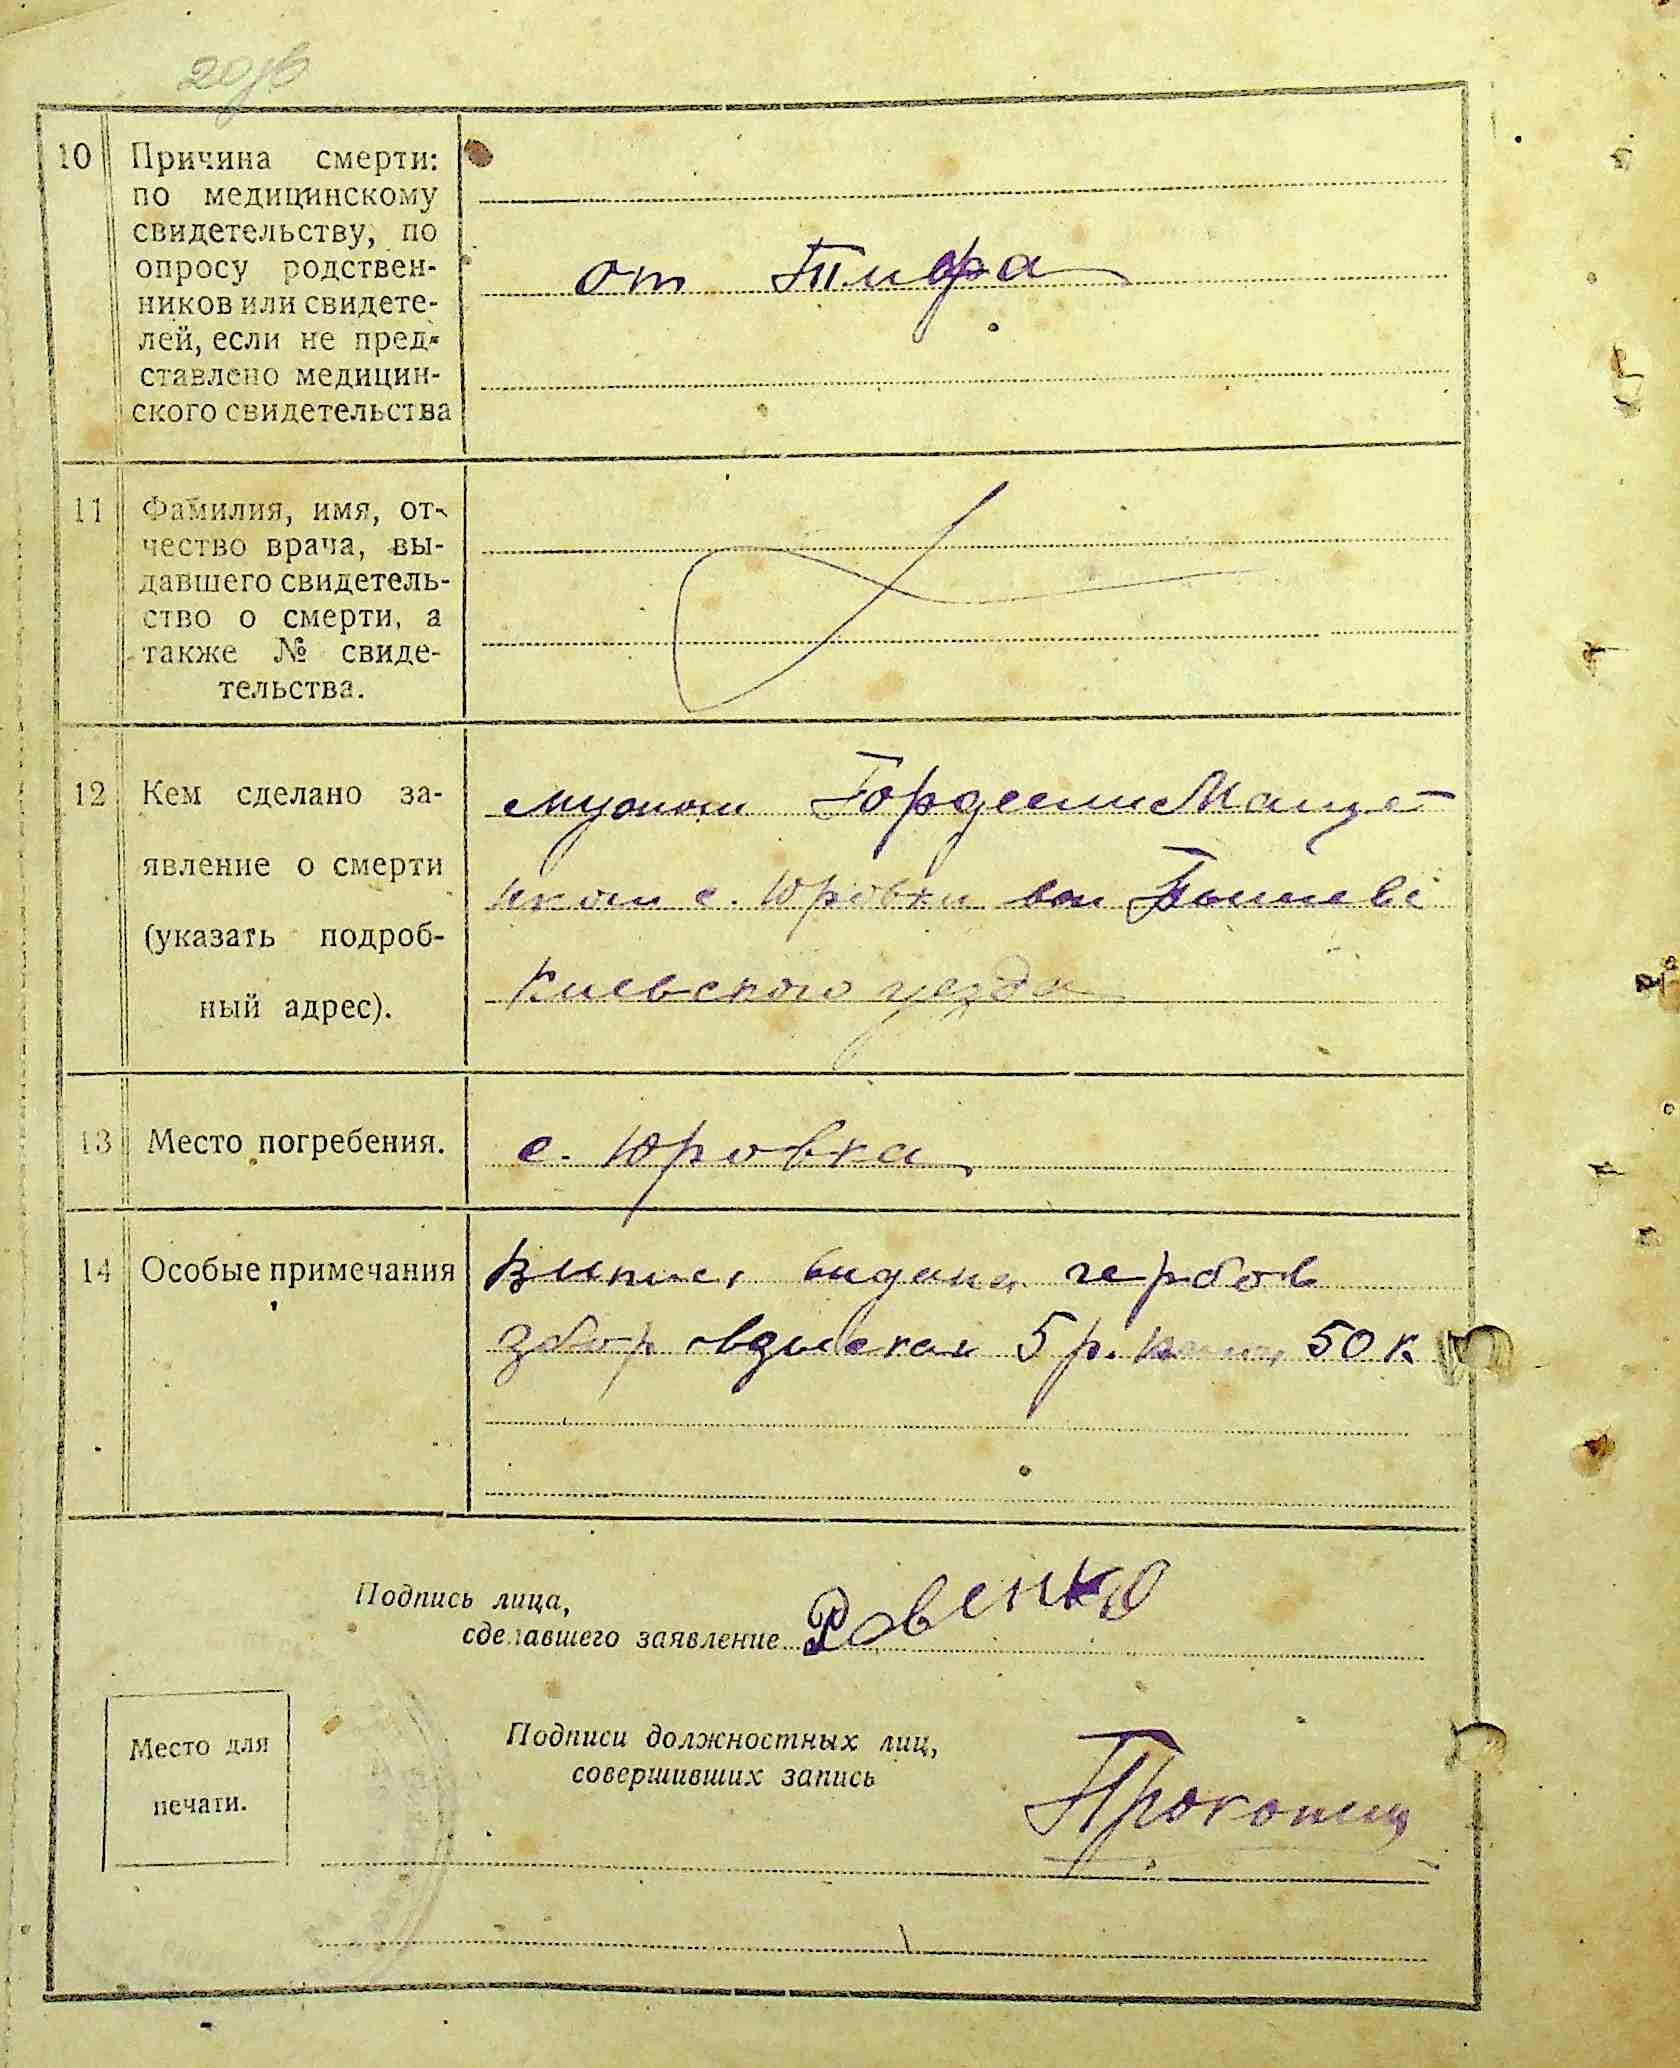 10 Причина смерти:
по медицинскому
свидетельству, по
опросу родствен-
ников или свидете-
лей, если не пред-
ставлено медицин-
ского свидетельства
от Тифа
11 Фамилия, имя, от-
чество врача, вы-
давшего свидетель-
ство о смерти, а
также № свиде-
тельства.
12 Кем сделано за-
явление о смерти
(указать подроб-
ный адрес).
мужом Гордеем Маще-
нком с. Юровки вол
Киевского уезда
13 Место погребения.
с. Юровка
14 Особые примечания
видана гербов
збор 5 р. 50 к
Подпись лица,
сделавшего заявление Ровенко
Место для
печати.
Подписи должностных лиц,
совершивших запись